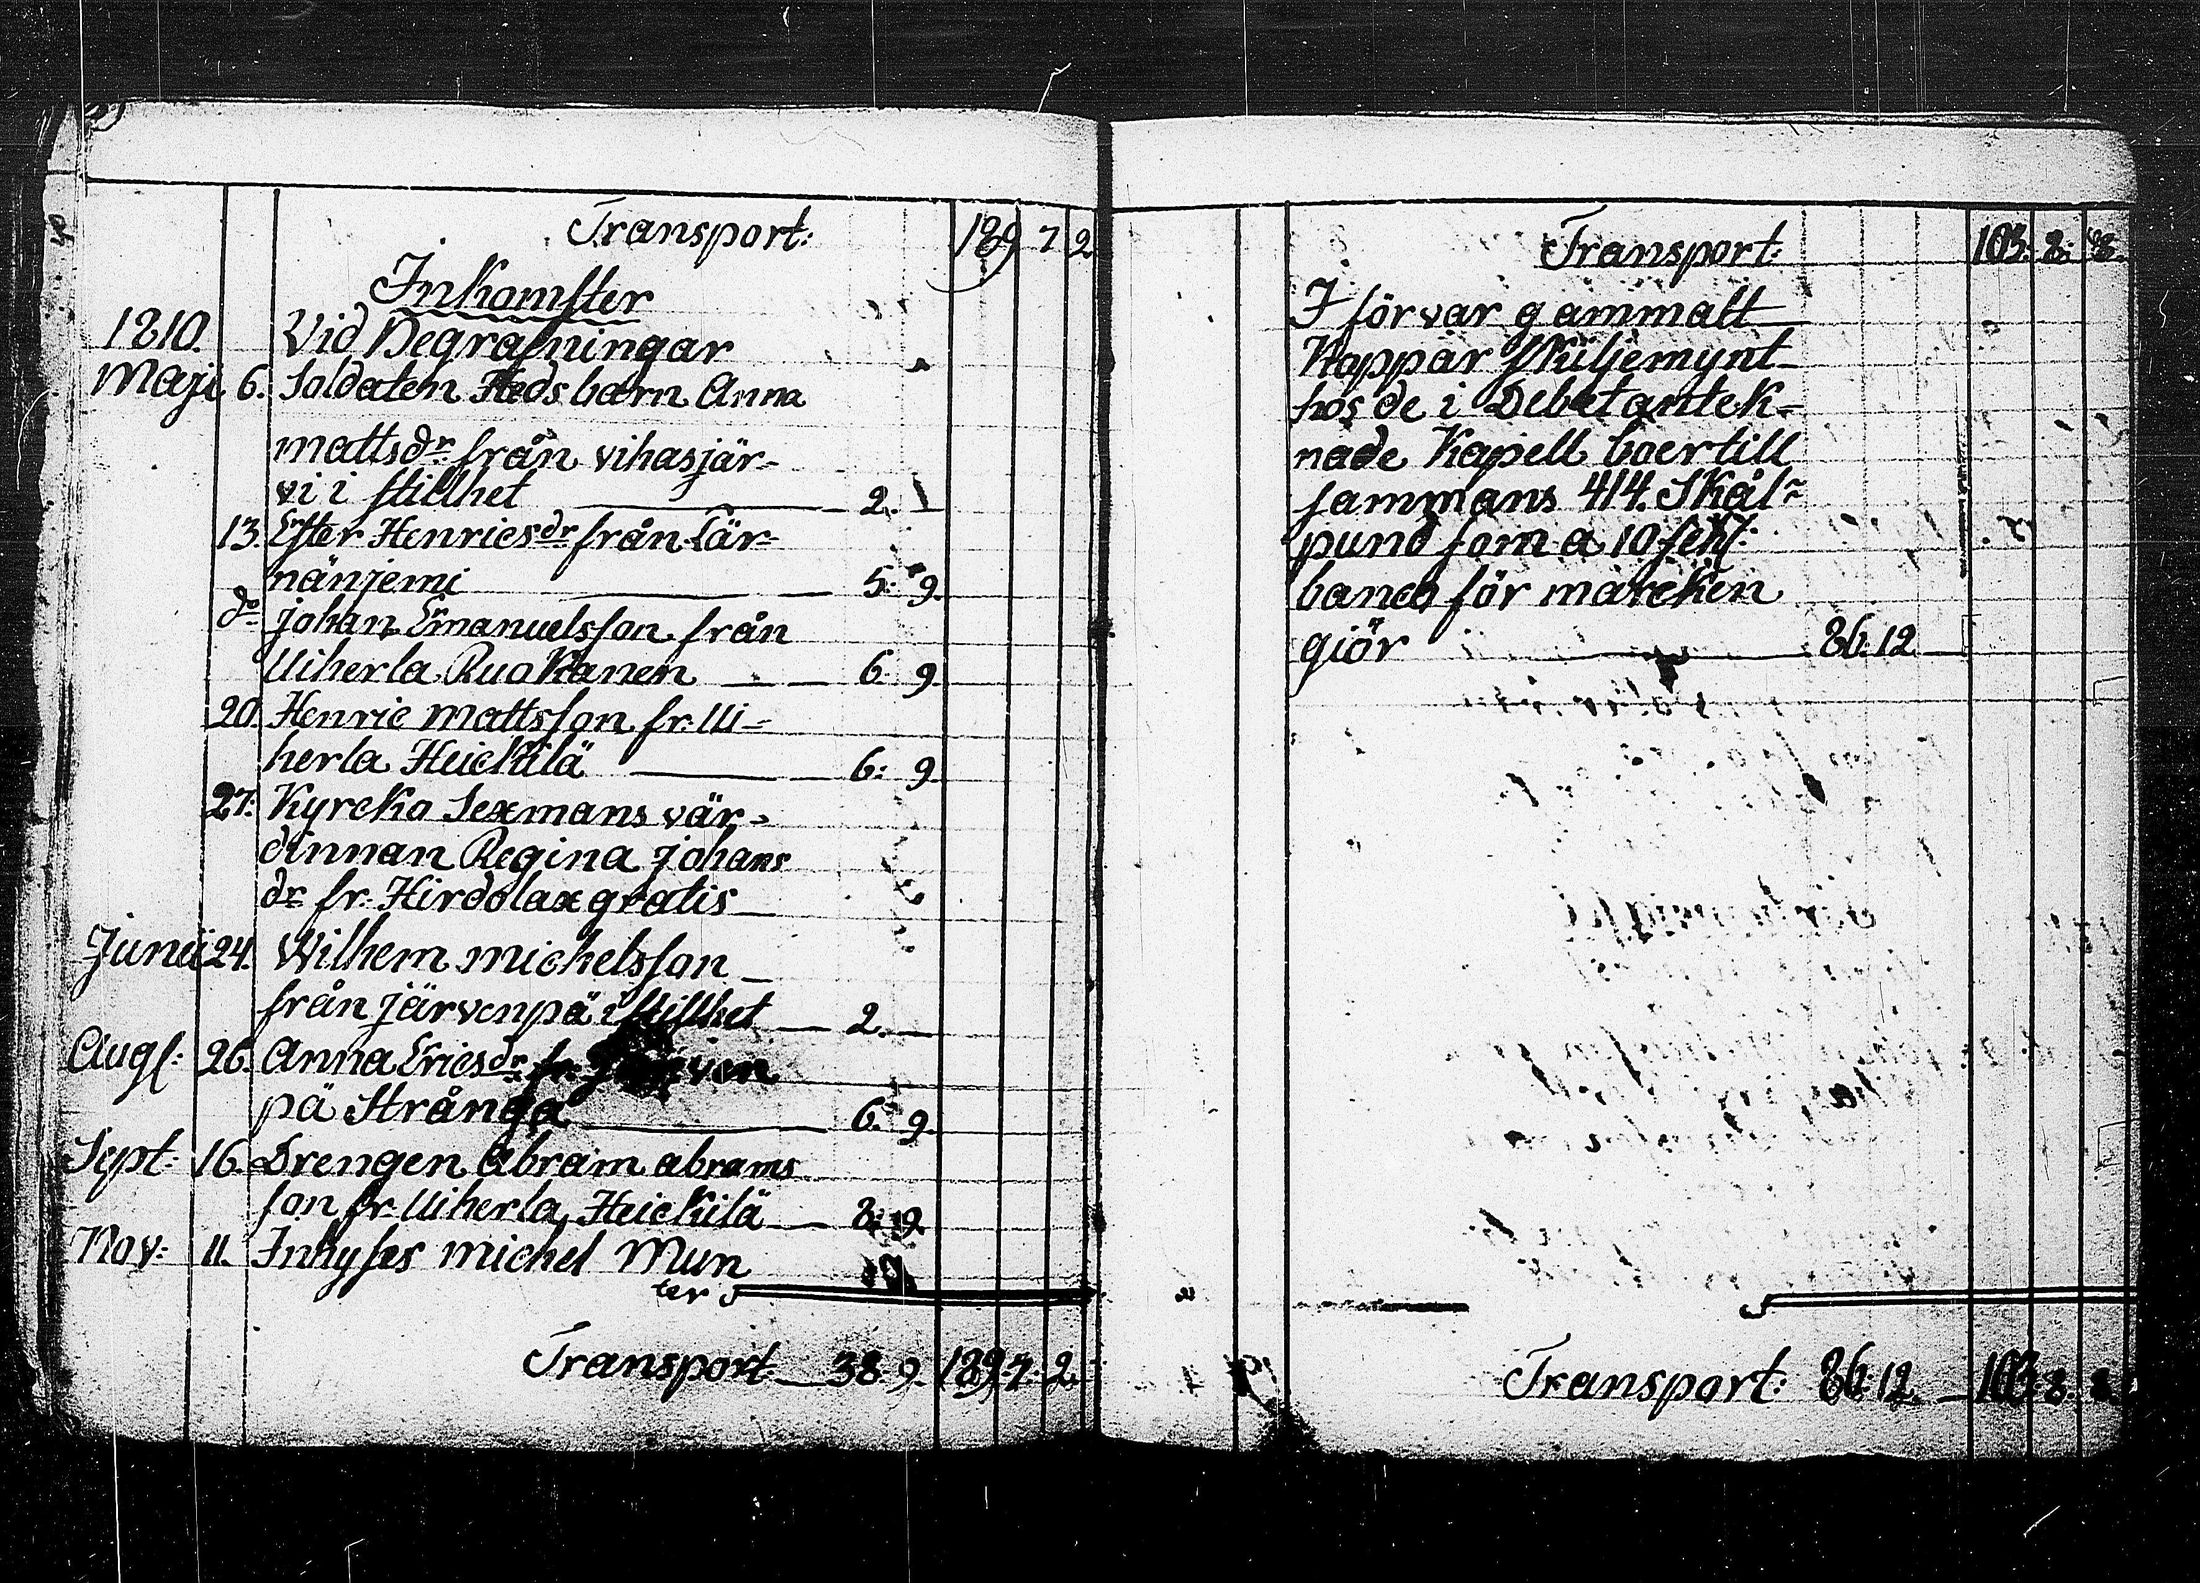 Transport: 189 7 2
Inkomster
1810. Vid Begrafningar
Maji 6. Soldaten Heds barn Anna
mattsdr från vihasjär-
vi i stillhet 2.
13. Ester Henricsdr från Lär-
nänjemi 5: 9.
do Johan Emanuelsson från
Uiherla Ruokanen 6: 9.
20. Henric mattsson fr: Ui-
herla Heickilä 6: 9.
27: Kyrcko Sexmans vär-
dinnan Regina Johans
dr fr: Hirdolax gratis
Junii 24. Wilhem michelsson
från Järvenpä i stillhet 2.
Augs: 26. Anna Ericsdr fr: Järven
pä Strånga 6: 9.
Sept: 16. Drengen Abram abrams
son fr Uiherla Heickilä 8: 9.
Nov: 11. Inhyses michel Mun
ter
Transport 38. 9. 189. 7. 2.
Transport: 103. 8. 8.
I förvar gammalt
Koppar Skiljemynt
hos de i Debet antek-
nade Kapell boer till
sammans 414. Skål-
pund som a 10 sch:
banco för marcken
giör 86. 12
Transport: 86. 12. 103. 8. 8.